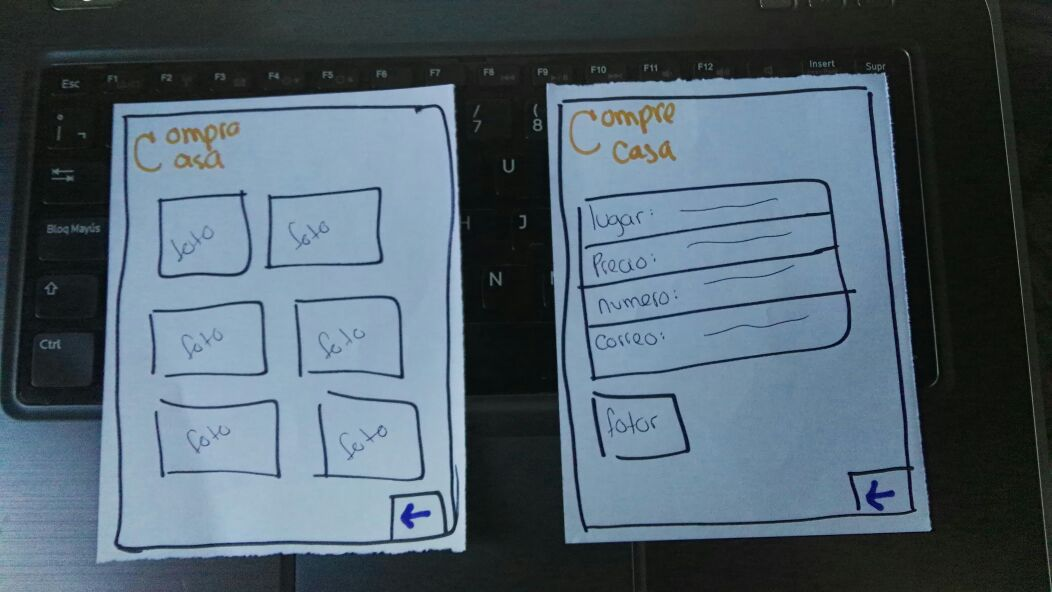 Esc F1 F2 F3 F4 F5 F6 F7 F8 F9 F10 F11 F12 Insert Supr
/
7
(
8
U
Bloq Mayús
H
J
N
Ctrl
Compra
Casa
foto foto
foto foto
foto foto
←
Compre
casa
lugar:
Precio:
numero:
correo:
fotor
←